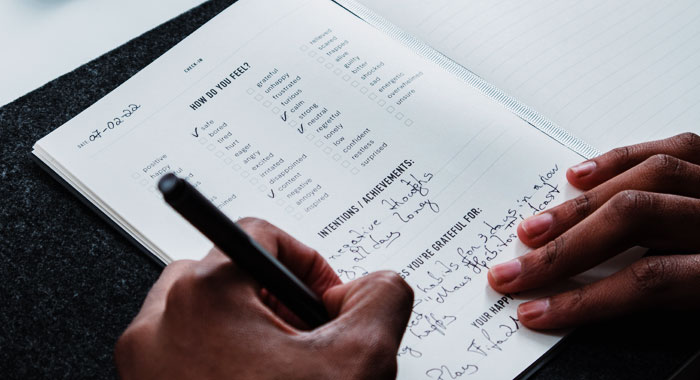 CHECK-IN
DATE: 07-02-22
HOW DO YOU FEEL?
positive
happy
safe
bored
tired
hurt
angry
excited
irritated
disappointed
content
negative
annoyed
inspired
grateful
unhappy
frustrated
furious
calm
eager
strong
neutral
regretful
lonely
low
confident
restless
surprised
relieved
scared
trapped
alive
guilty
bitter
shocked
sad
energetic
overwhelmed
unsure
INTENTIONS / ACHIEVEMENTS:
negative thoughts
all day long
YOU'RE GRATEFUL FOR:
habits for 3 days in a row
podcast
happy
YOUR HAPPY
Play Fifa